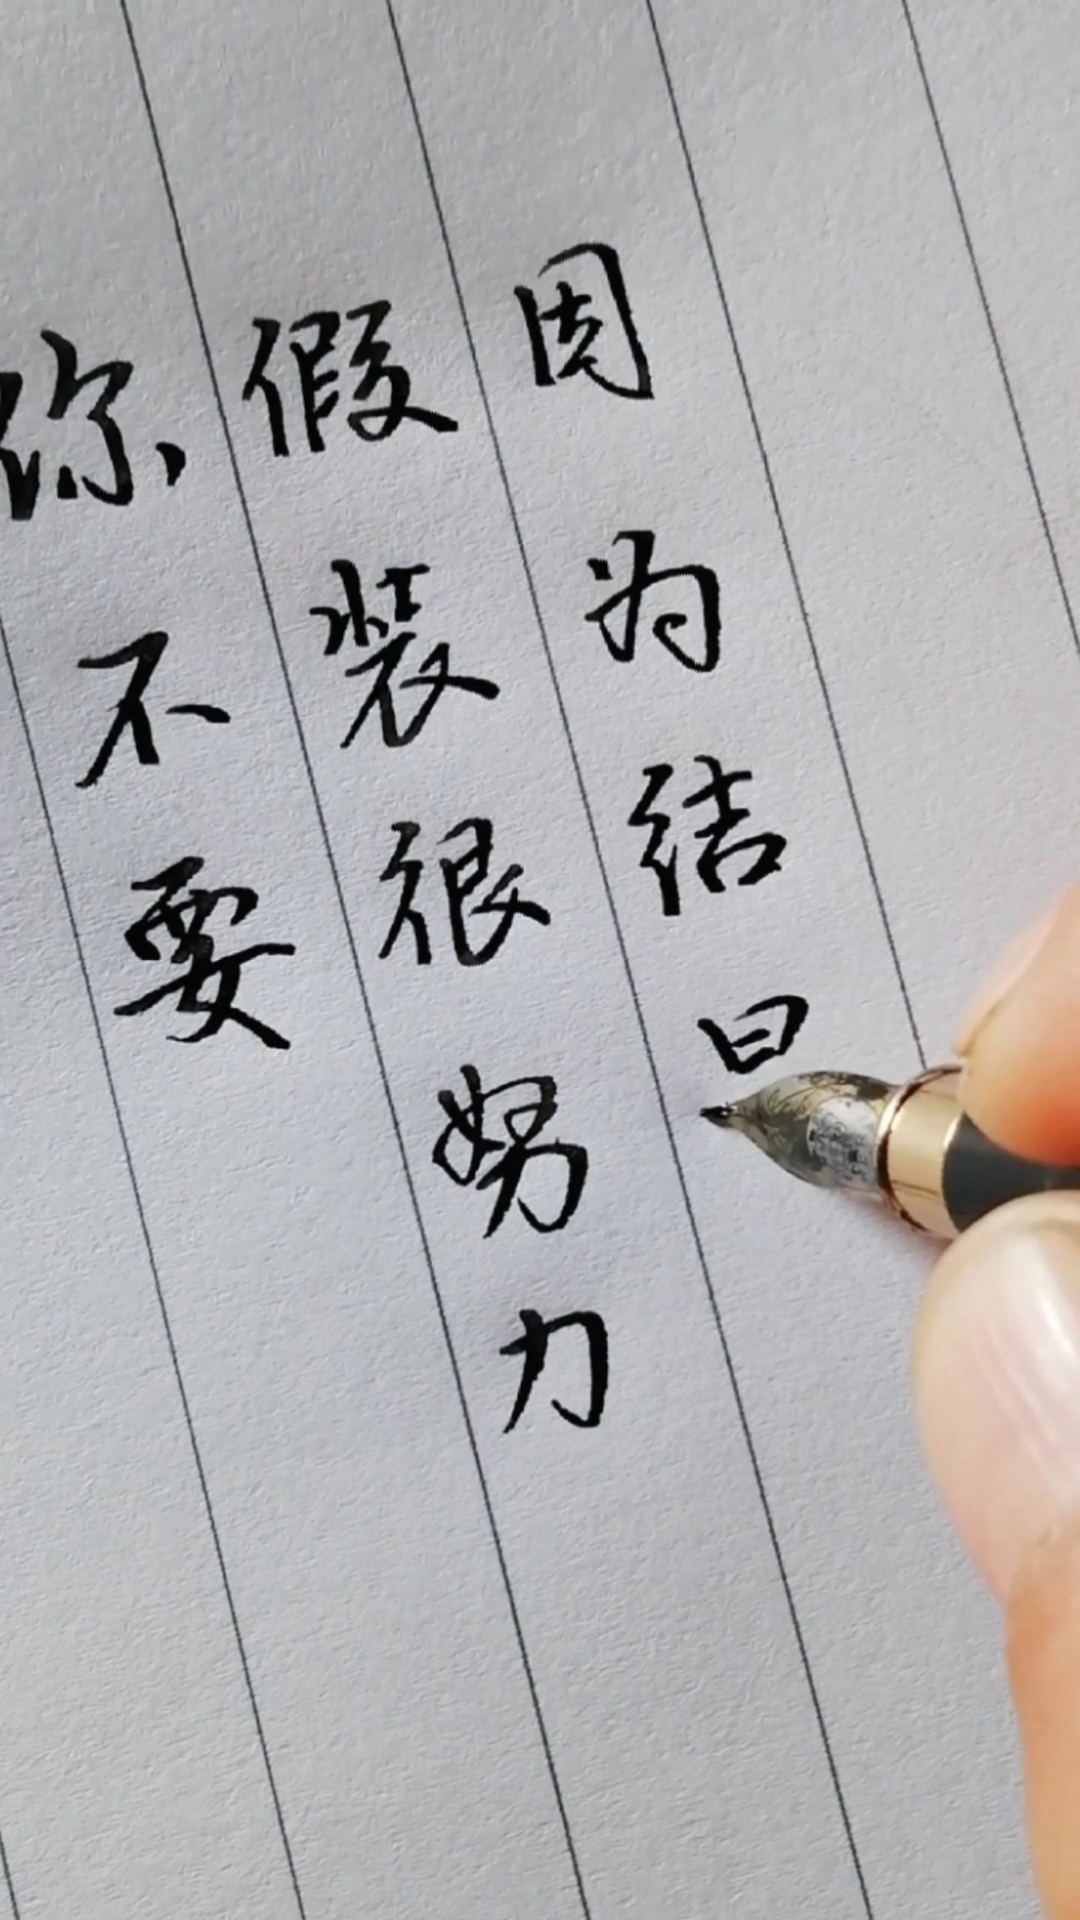 你不要
假装很努力
因为结日